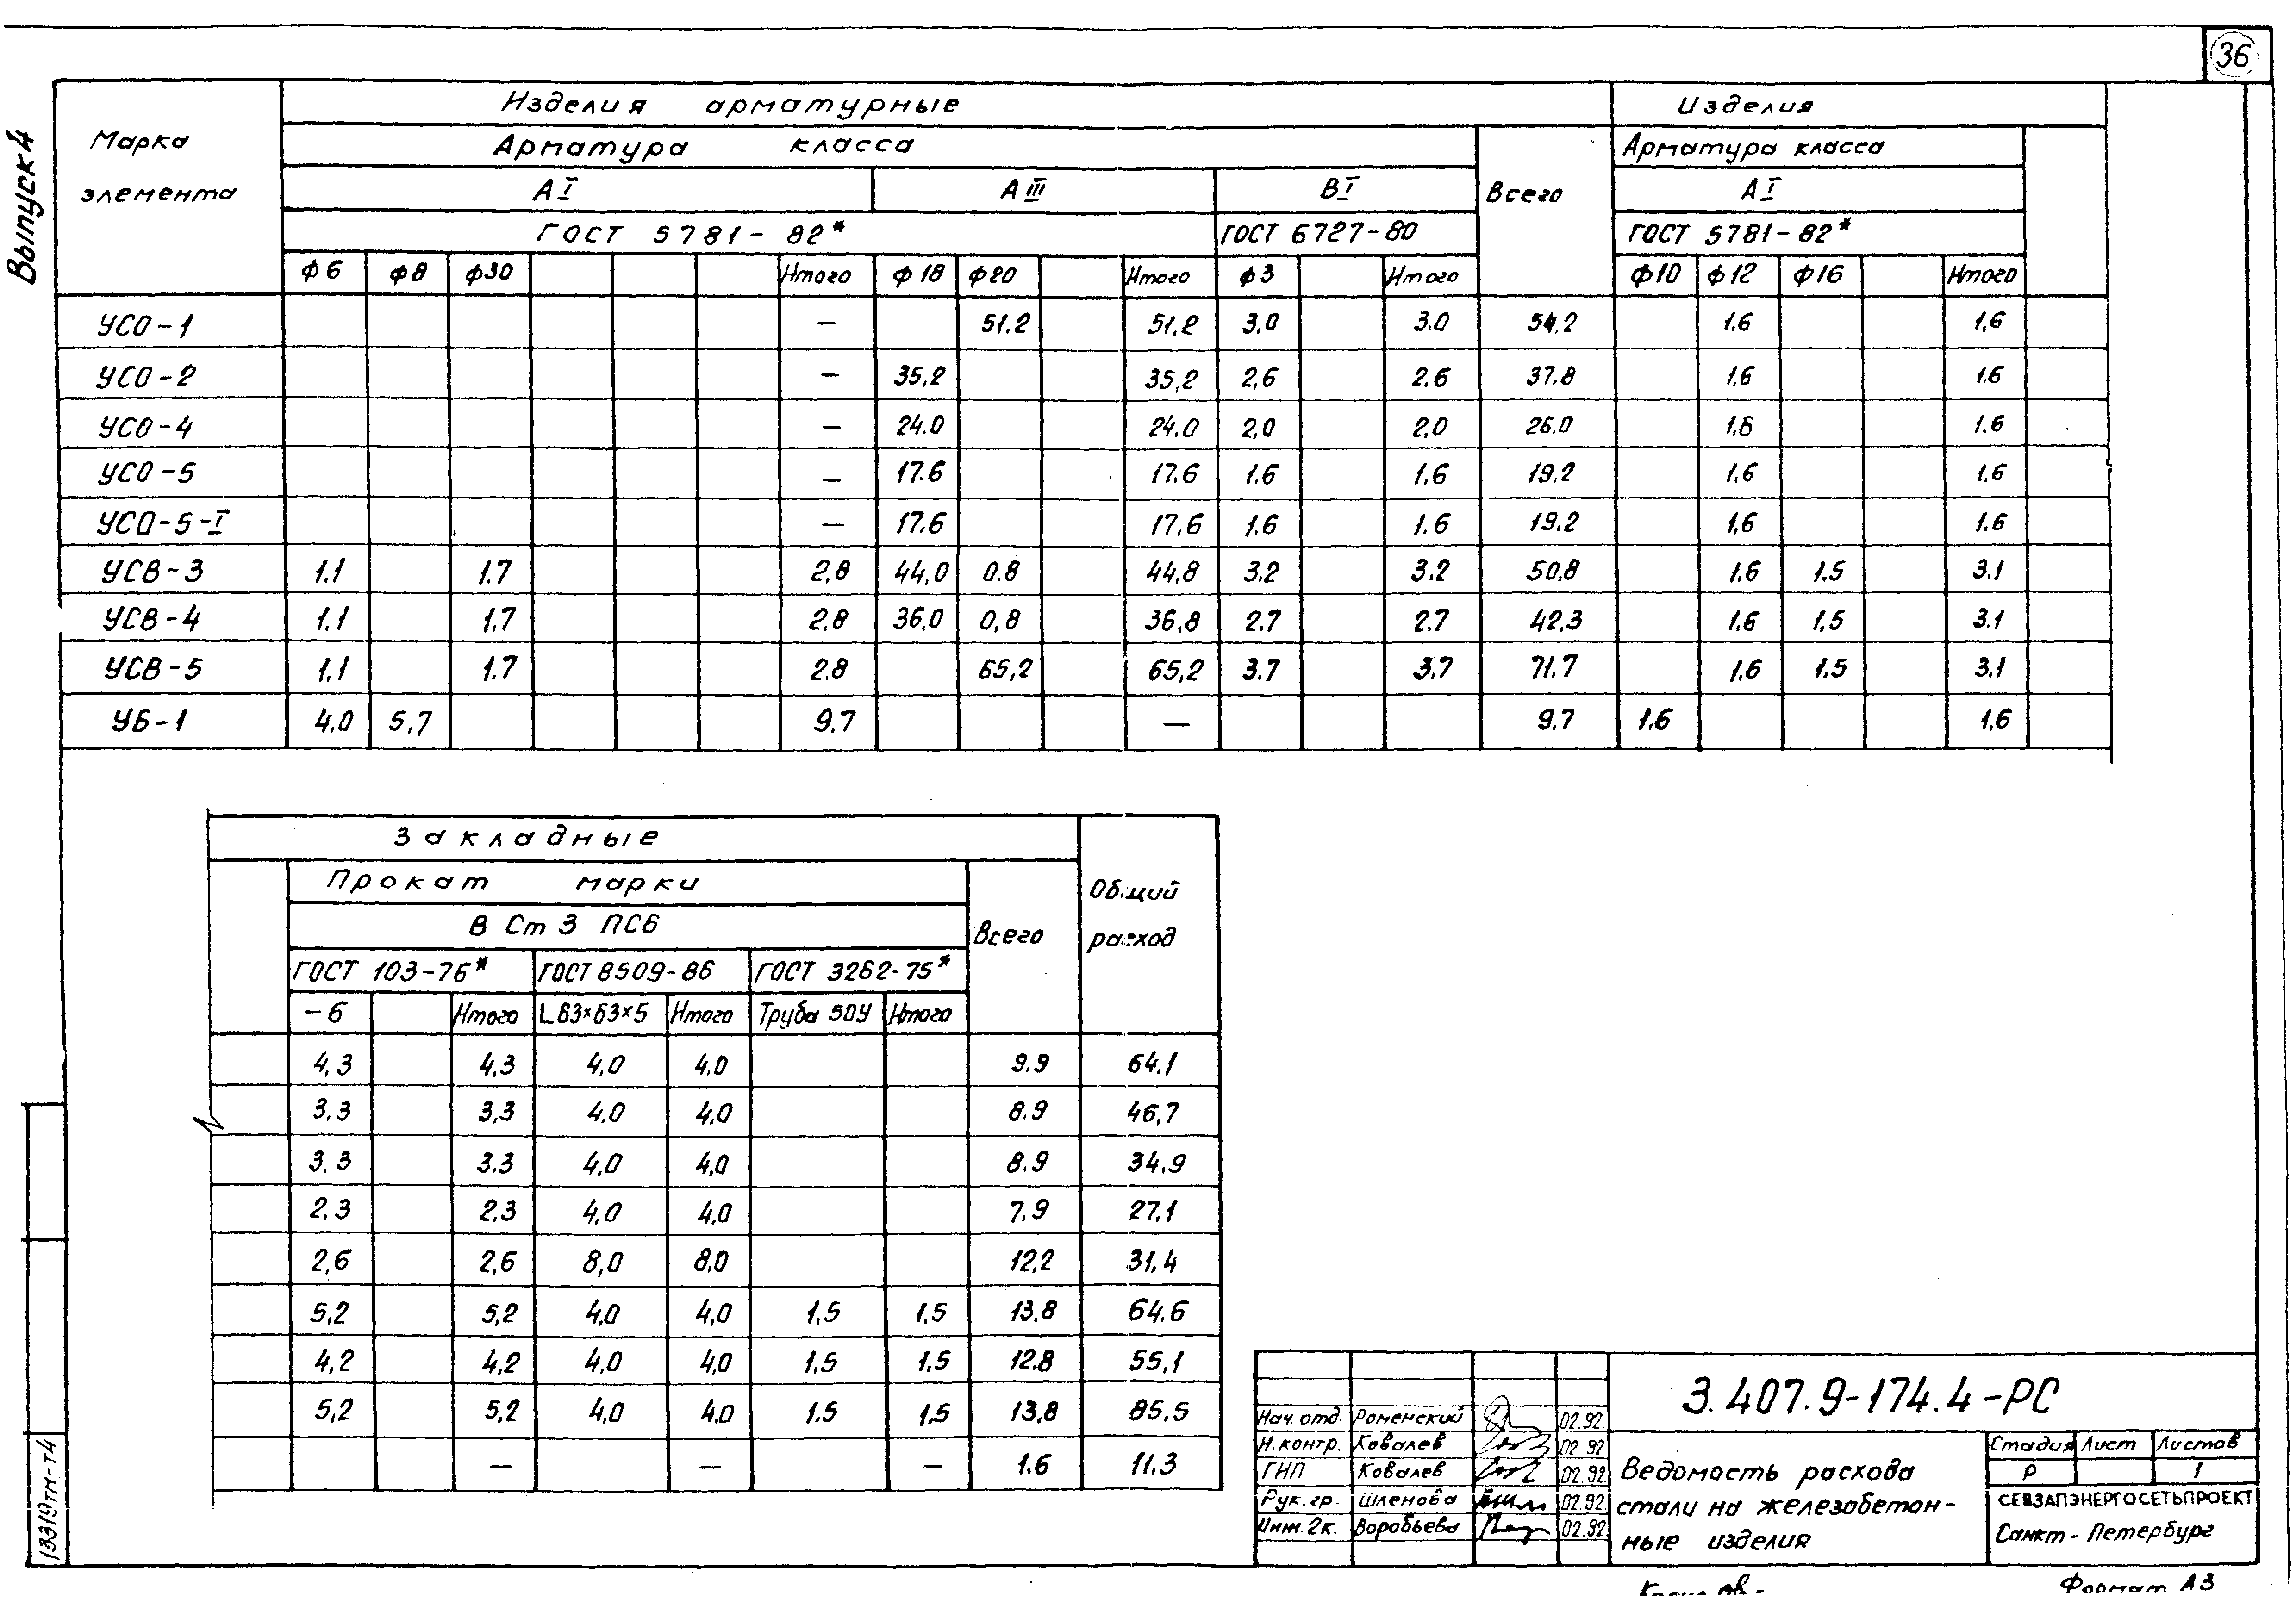 36
Выпуск 4
Марка элемента
Изделия арматурные
Изделия
Арматура класса
Всего
Арматура класса
А I
А III
В I
А I
ГОСТ 5781-82*
ГОСТ 6727-80
ГОСТ 5781-82*
ф6 ф8 ф30 Итого ф18 ф20 Итого ф3 Итого ф10 ф12 ф16 Итого
УСО-1 — 51.2 51,2 3.0 3.0 54.2 1.6 1,6
УСО-2 — 35,2 35,2 2,6 2.6 37.8 1,6 1.6
УСО-4 — 24.0 24.0 2,0 2,0 26.0 1.6 1.6
УСО-5 — 17.6 17.6 1.6 1,6 19,2 1.6 1.6
УСО-5-I — 17.6 17,6 1.6 1.6 19.2 1,6 1.6
УСВ-3 1.1 1.7 2,8 44,0 0.8 44,8 3.2 3.2 50,8 1.6 1.5 3.1
УСВ-4 1.1 1.7 2,8 36,0 0,8 36,8 2.7 2.7 42,3 1.6 1,5 3.1
УСВ-5 1.1 1.7 2.8 65,2 65,2 3.7 3,7 71.7 1.6 1.5 3.1
УБ-1 4.0 5,7 9.7 — 9.7 1.6 1,6
Закладные
Общий расход
Прокат марки
Всего
В Ст 3 ПС6
ГОСТ 103-76* ГОСТ 8509-86 ГОСТ 3262-75*
-6 Итого L63×63×5 Итого Труба 50У Итого
4,3 4.3 4,0 4.0 9.9 64.1
3,3 3,3 4,0 4,0 8.9 46,7
3.3 3.3 4,0 4,0 8.9 34.9
2,3 2,3 4,0 4,0 7,9 27.1
2,6 2,6 8,0 8,0 12,2 31.4
5,2 5,2 4,0 4,0 1,5 1.5 13.8 64.6
4,2 4,2 4,0 4,0 1.5 1.5 12.8 55,1
5,2 5,2 4,0 4.0 1.5 1.5 13,8 85,5
— — — 1.6 11.3
3.407.9-174.4-РС
Нач. отд. Роменский 02.92
Н.контр. Ковалев 02.92
ГИП Ковалев 02.92
Рук.гр. Шленова 02.92
Инж.2к. Воробьева 02.92
Ведомость расхода
стали на железобетон-
ные изделия
Стадия Лист Листов
Р 1
СЕВЗАПЭНЕРГОСЕТЬПРОЕКТ
Санкт-Петербург
13319тм-т4
Формат А3